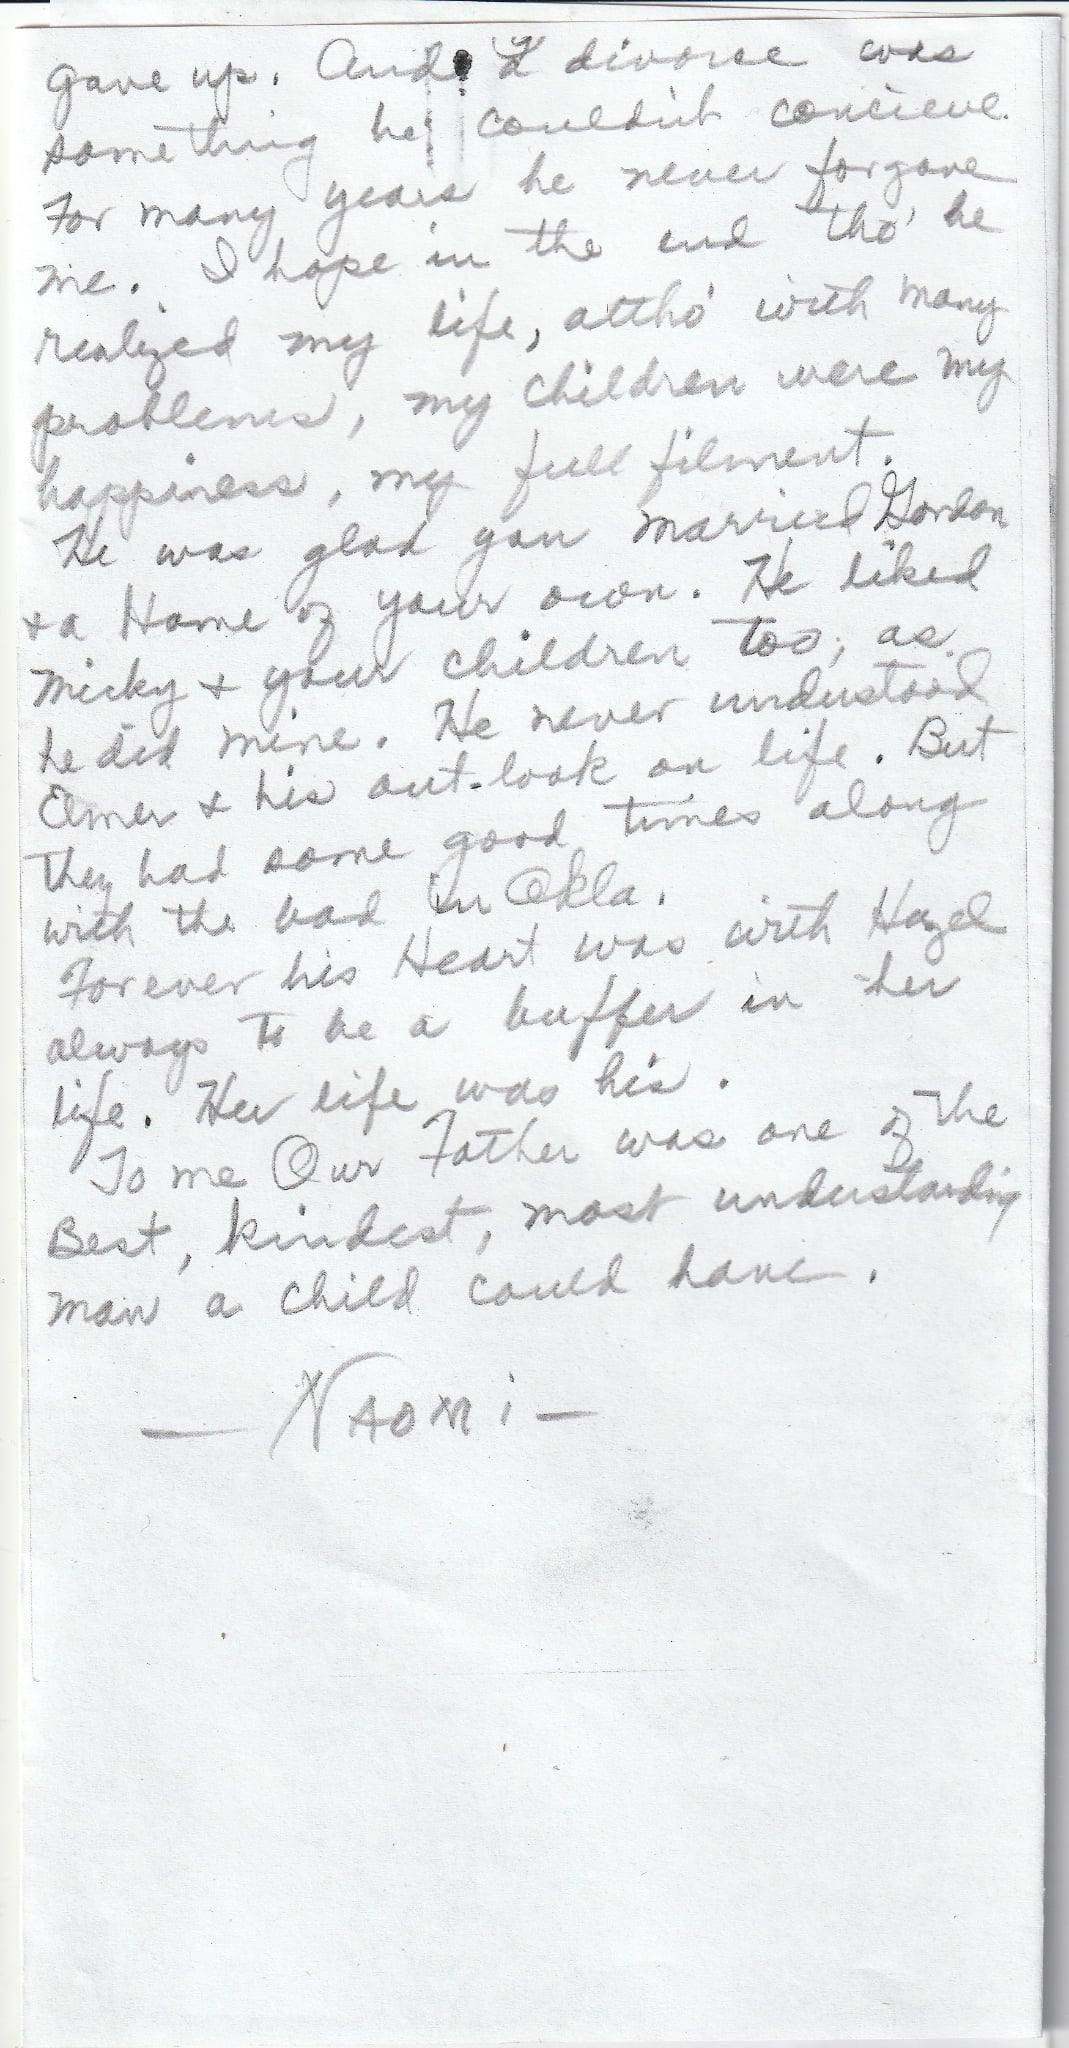 gave up. And a divorce was
something he couldn't concieve.
For many years he never forgave
me. I hope in the end tho' he
realized my life, altho' with many
problems, my children were my
happiness, my full filment.
He was glad you married Gordon
& a Home of your own. He liked
Micky & your children too, as
he did mine. He never understood
Elmer & his out-look on life. But
they had some good times along
with the bad in Okla.
Forever his Heart was with Hazel
always to be a buffer in her
life. Her life was his.
To me Our Father was one of the
Best, kindest, most understanding
man a child could have.
— NAOMi —